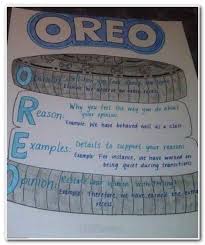 OREO
Opinion:
Reason: Why you feel the way you do about
your opinion.
Example: We have behaved well as a class
Examples: Details to support your reasons
Example: For instance, we have worked on
being quiet during transitions
Opinion: Restate your opinion
Example: Therefore, we have earned extra
recess